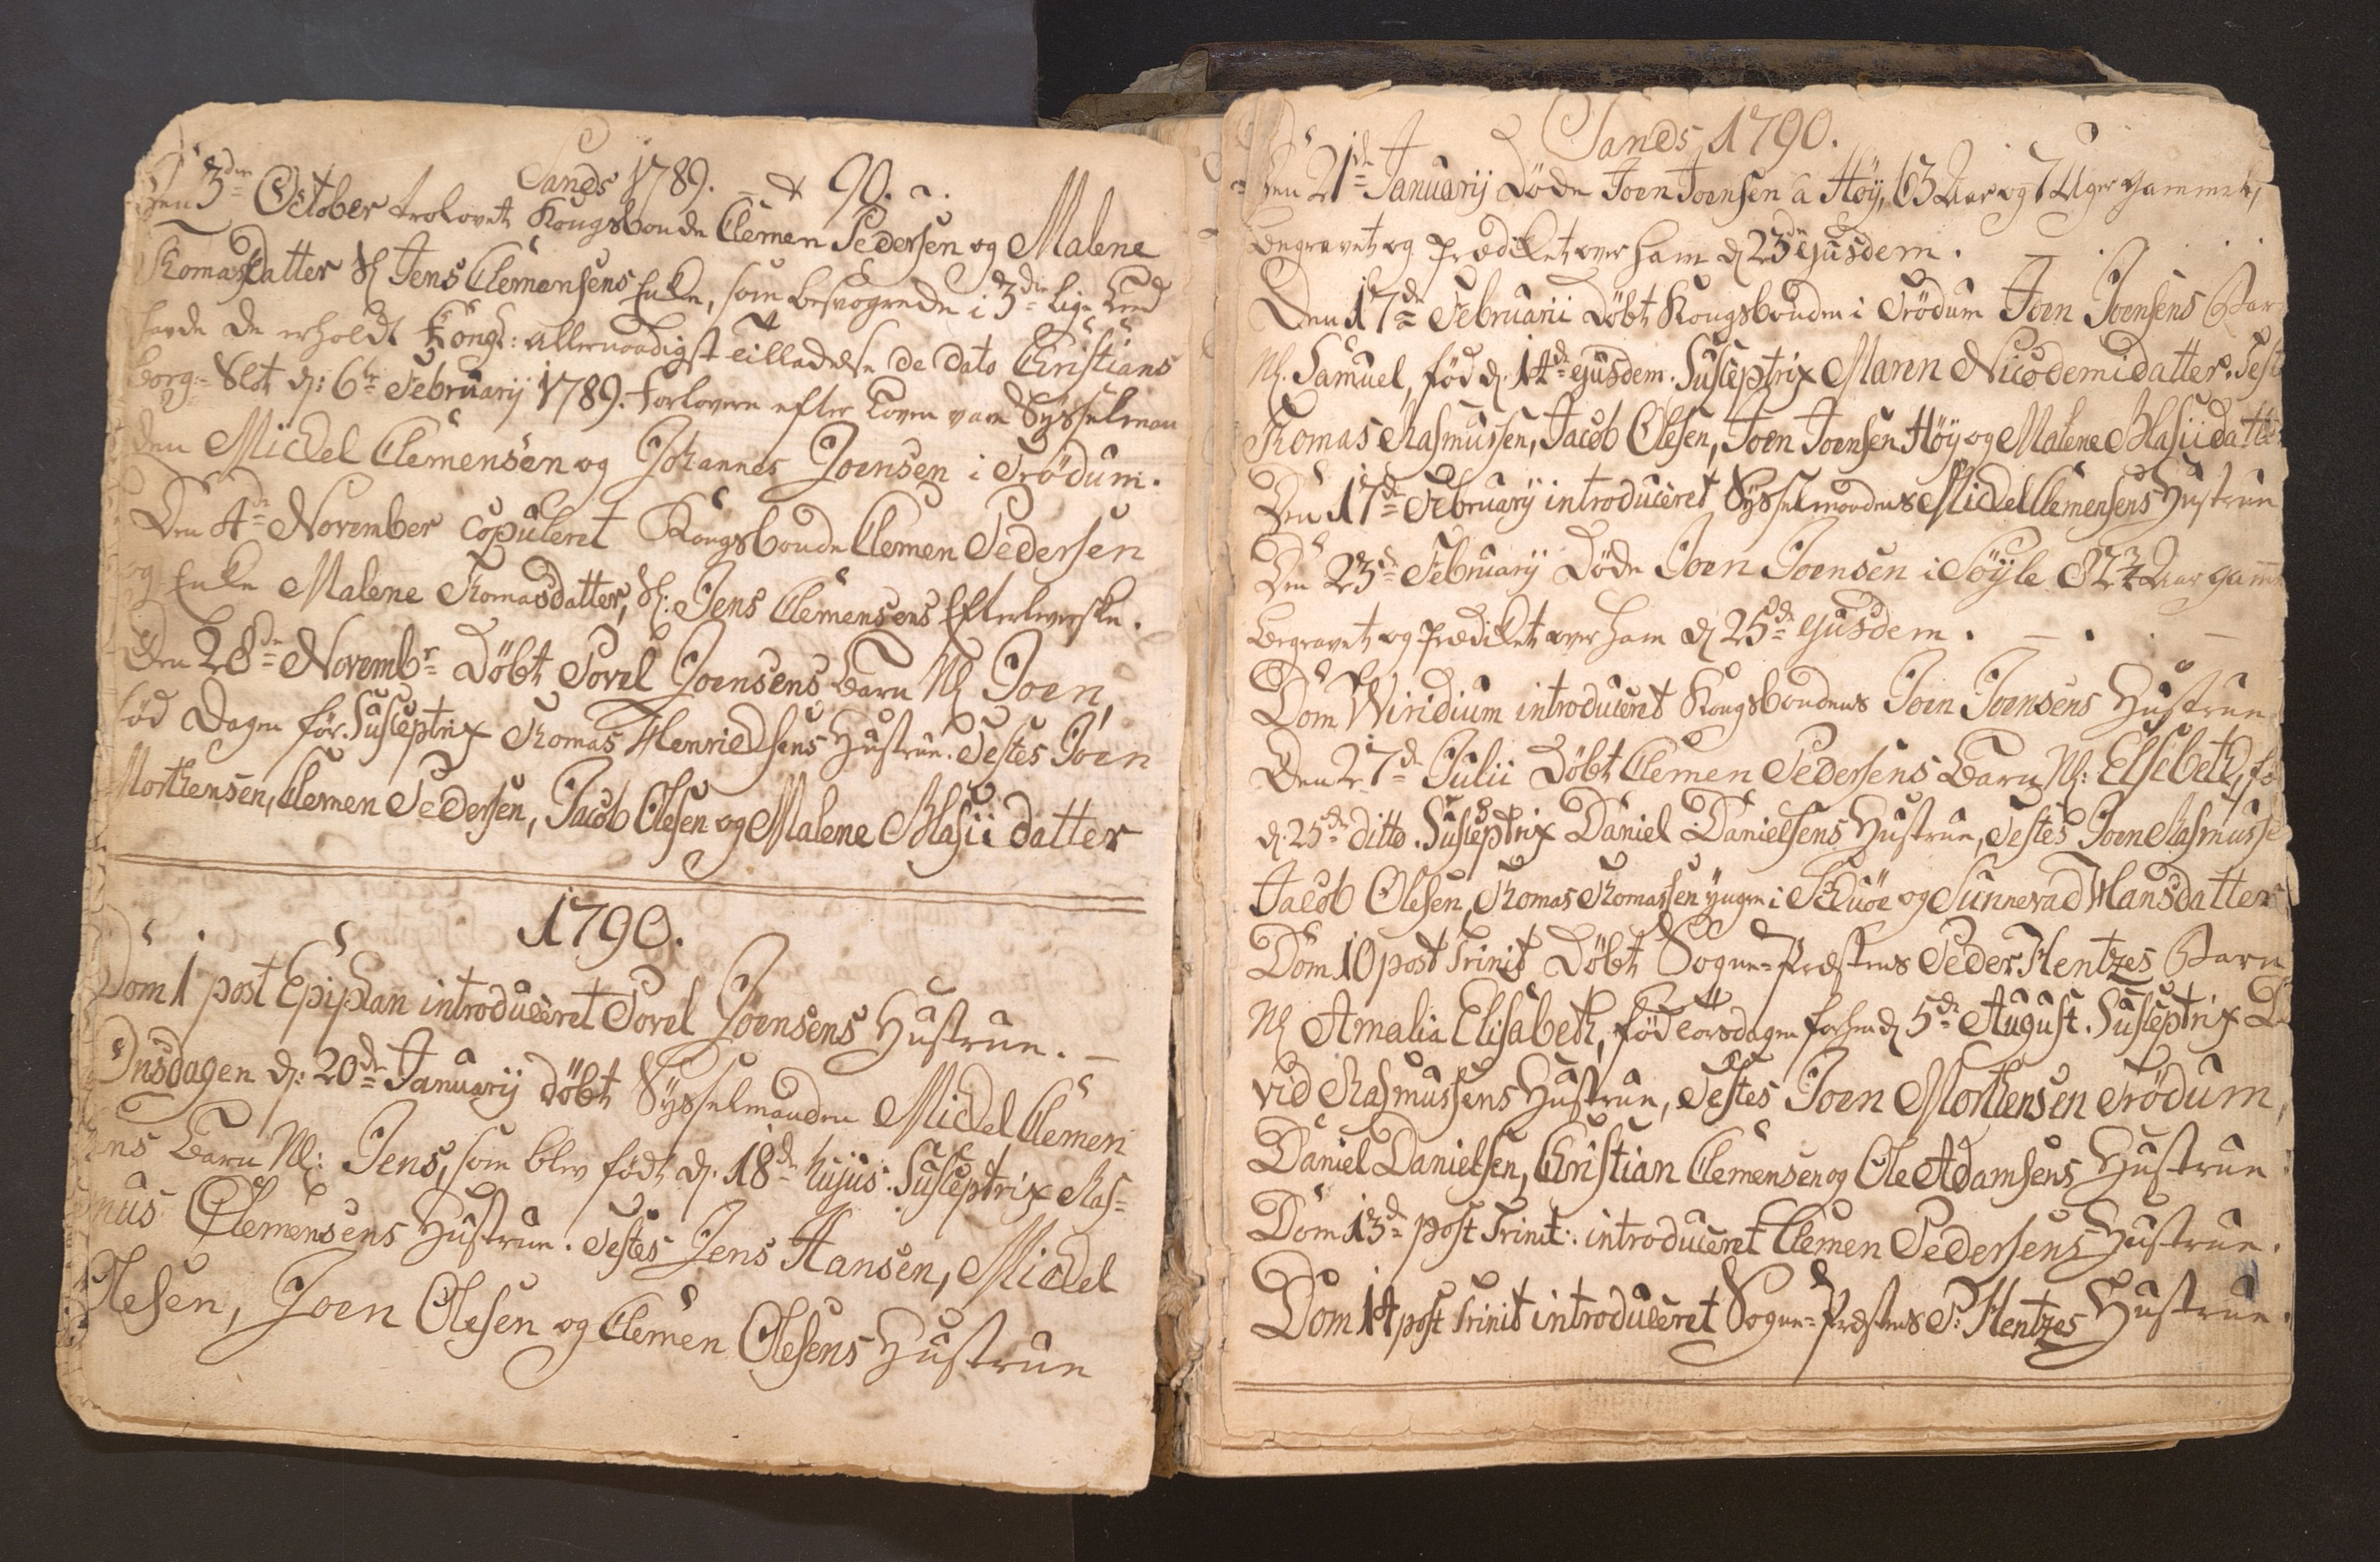 Sands 1789. = & 90.
Den 3die October trolovet Kongsbonde Clemen Pedersen og Malene
Thomasdatter Sl Jens Clemensens Enke, som besvogrede i 3die Lige Leed
havde de erholdt Kongl: allernaadigst Tilladelse de dato Christians
borg-Slot d: 6te Februarij 1789. Forlovere efter Loven vare Sysselman
den Michel Clemensen og Johannes Joensen i Trödum.
Den 4de November copuleret Kongsbonde Clemen Pedersen
og Enke Malene Thomasdatter, Sl: Jens Clemensens Efterleverske.
Den 28de Novembr Döbt Povel Joensens Barn Nl Joen,
föd Dagen för. Susceptrix Thomas Henrichsens Hustrue. Testes Joen
Morthensen, Clemen Pedersen, Jacob Olesen og Malene Blasii datter
1790.
Dom 1 post Epiphan introduceret Povel Joensens Hustrue. —
Onsdagen d: 20de Januarij döbt Sysselmanden Michel Clemen
sens Barn Nl: Jens, som blev födt d. 18de hujus. Susceptrix Ras=
mus Clemensens Hustrue. Testes Jens Hansen, Michel
Olesen, Joen Olesen og Clemen Olesens Hustrue
Sands 1790.
Den 21de Januarij Döde Joen Joensen a Höy, 63 Aar og 7 Uger gammel,
Begravet og Prædiket over ham d 23de ejusdem. —
Den 17de Februarii Döbt Kongsbonden i Trödum Joen Joensens Bar
Nl. Samuel, föd d. 14de ejusdem. Susceptrix Maren Nicodemidatter. Test
Thomas Rasmussen, Jacob Olesen, Joen Joensen Höy og Malene Blasii datte
Den 17de Februarij introduceret Sysselmandens Michel Clemensens Hustrue
Den 23de Februarij Döde Joen Joensen i Söyle 82½ Aar gam̅
Begravet og Prædiket over ham d 25de ejusdem. — . —
Dom Viridium introduceret Kongsbondens Joen Joensens Hustrue
Den 27de Julii Döbt Clemen Pedersens Barn Nl: Elsebeth, fö
d. 25de ditto. Susceptrix Daniel Danielsens Hustrue, Testes Joen Rasmusse
Jacob Olesen, Thomas Thomassen yngre i Schuöe og Sunneva Dhansdatter
Dom 10 post Trinit Döbt Sogne-Præstens Peder Hentzes Barn
Nl Amalia Elisabeth, föd torsdagen forhen d 5de August. Susceptrix Da
vid Rasmussens Hustrue, Testes Joen Morthensen Trödum,
Daniel Danielsen, Christian Clemensen og Ole Adamsens Hustrue.
Dom 13de post Trinit: introduceret Clemen Pedersens Hustrue.
Dom 14 post Trinit introduceret Sogne-Præstens P: Hentzes Hustrue.